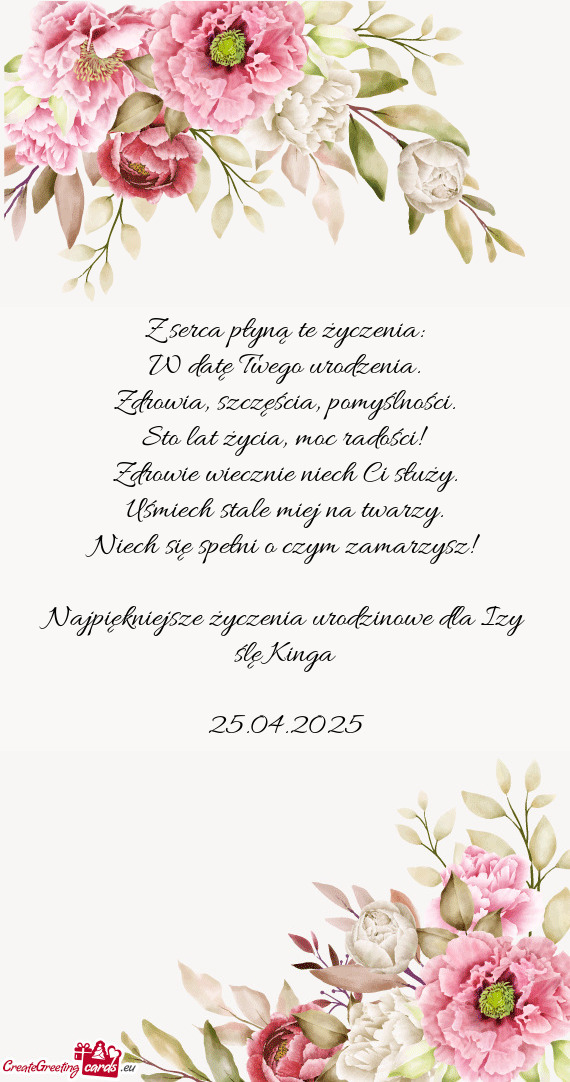 Z serca płyną te życzenia:
W datę Twego urodzenia.
Zdrowia, szczęścia, pomyślności.
Sto lat życia, moc radości!
Zdrowie wiecznie niech Ci służy.
Uśmiech stale miej na twarzy.
Niech się spełni o czym zamarzysz!
Najpiękniejsze życzenia urodzinowe dla Izy
ślę Kinga
25.04.2025
CreateGreeting cards .eu